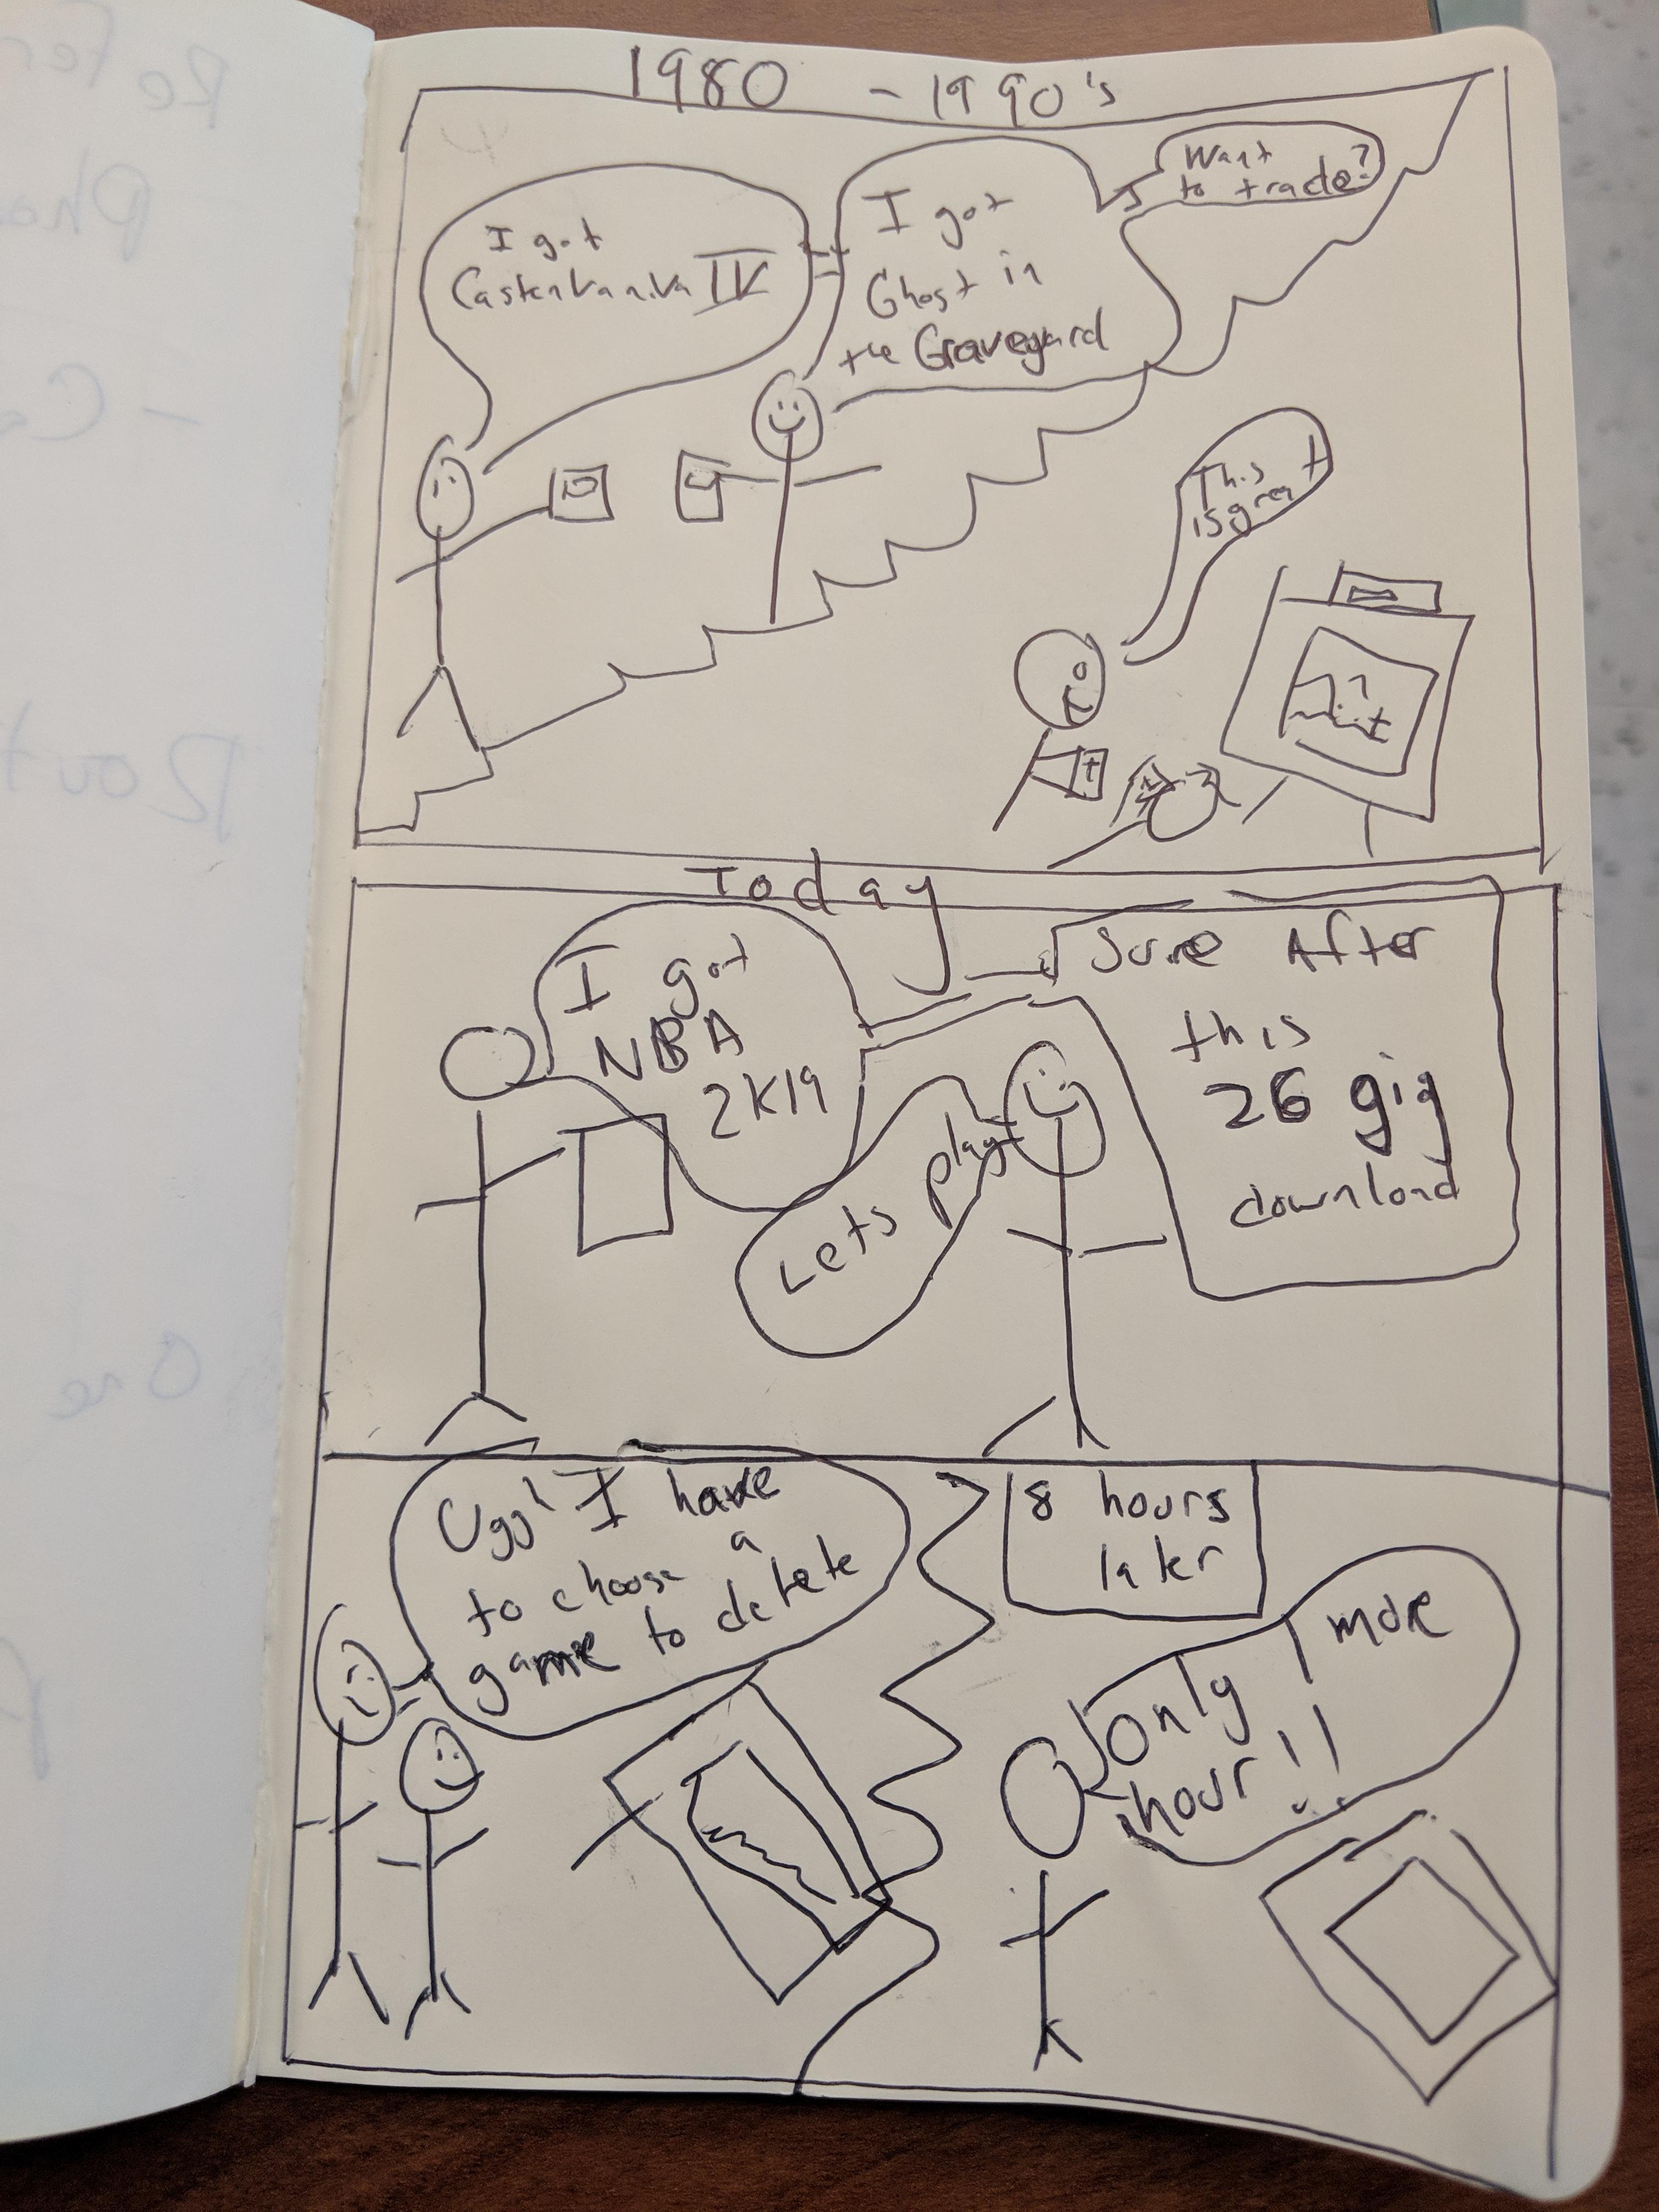 1980 - 1990's
I got
Castenvaniva IV
I got
Ghost in
the Graveyard
Want
to trade?
This
is great
Today
I got
NBA
2K19
Lets play
Sure After
this
26 gig
download
Ugg! I have
to choose a
game to delete
8 hours
later
Only 1 more
hour!!